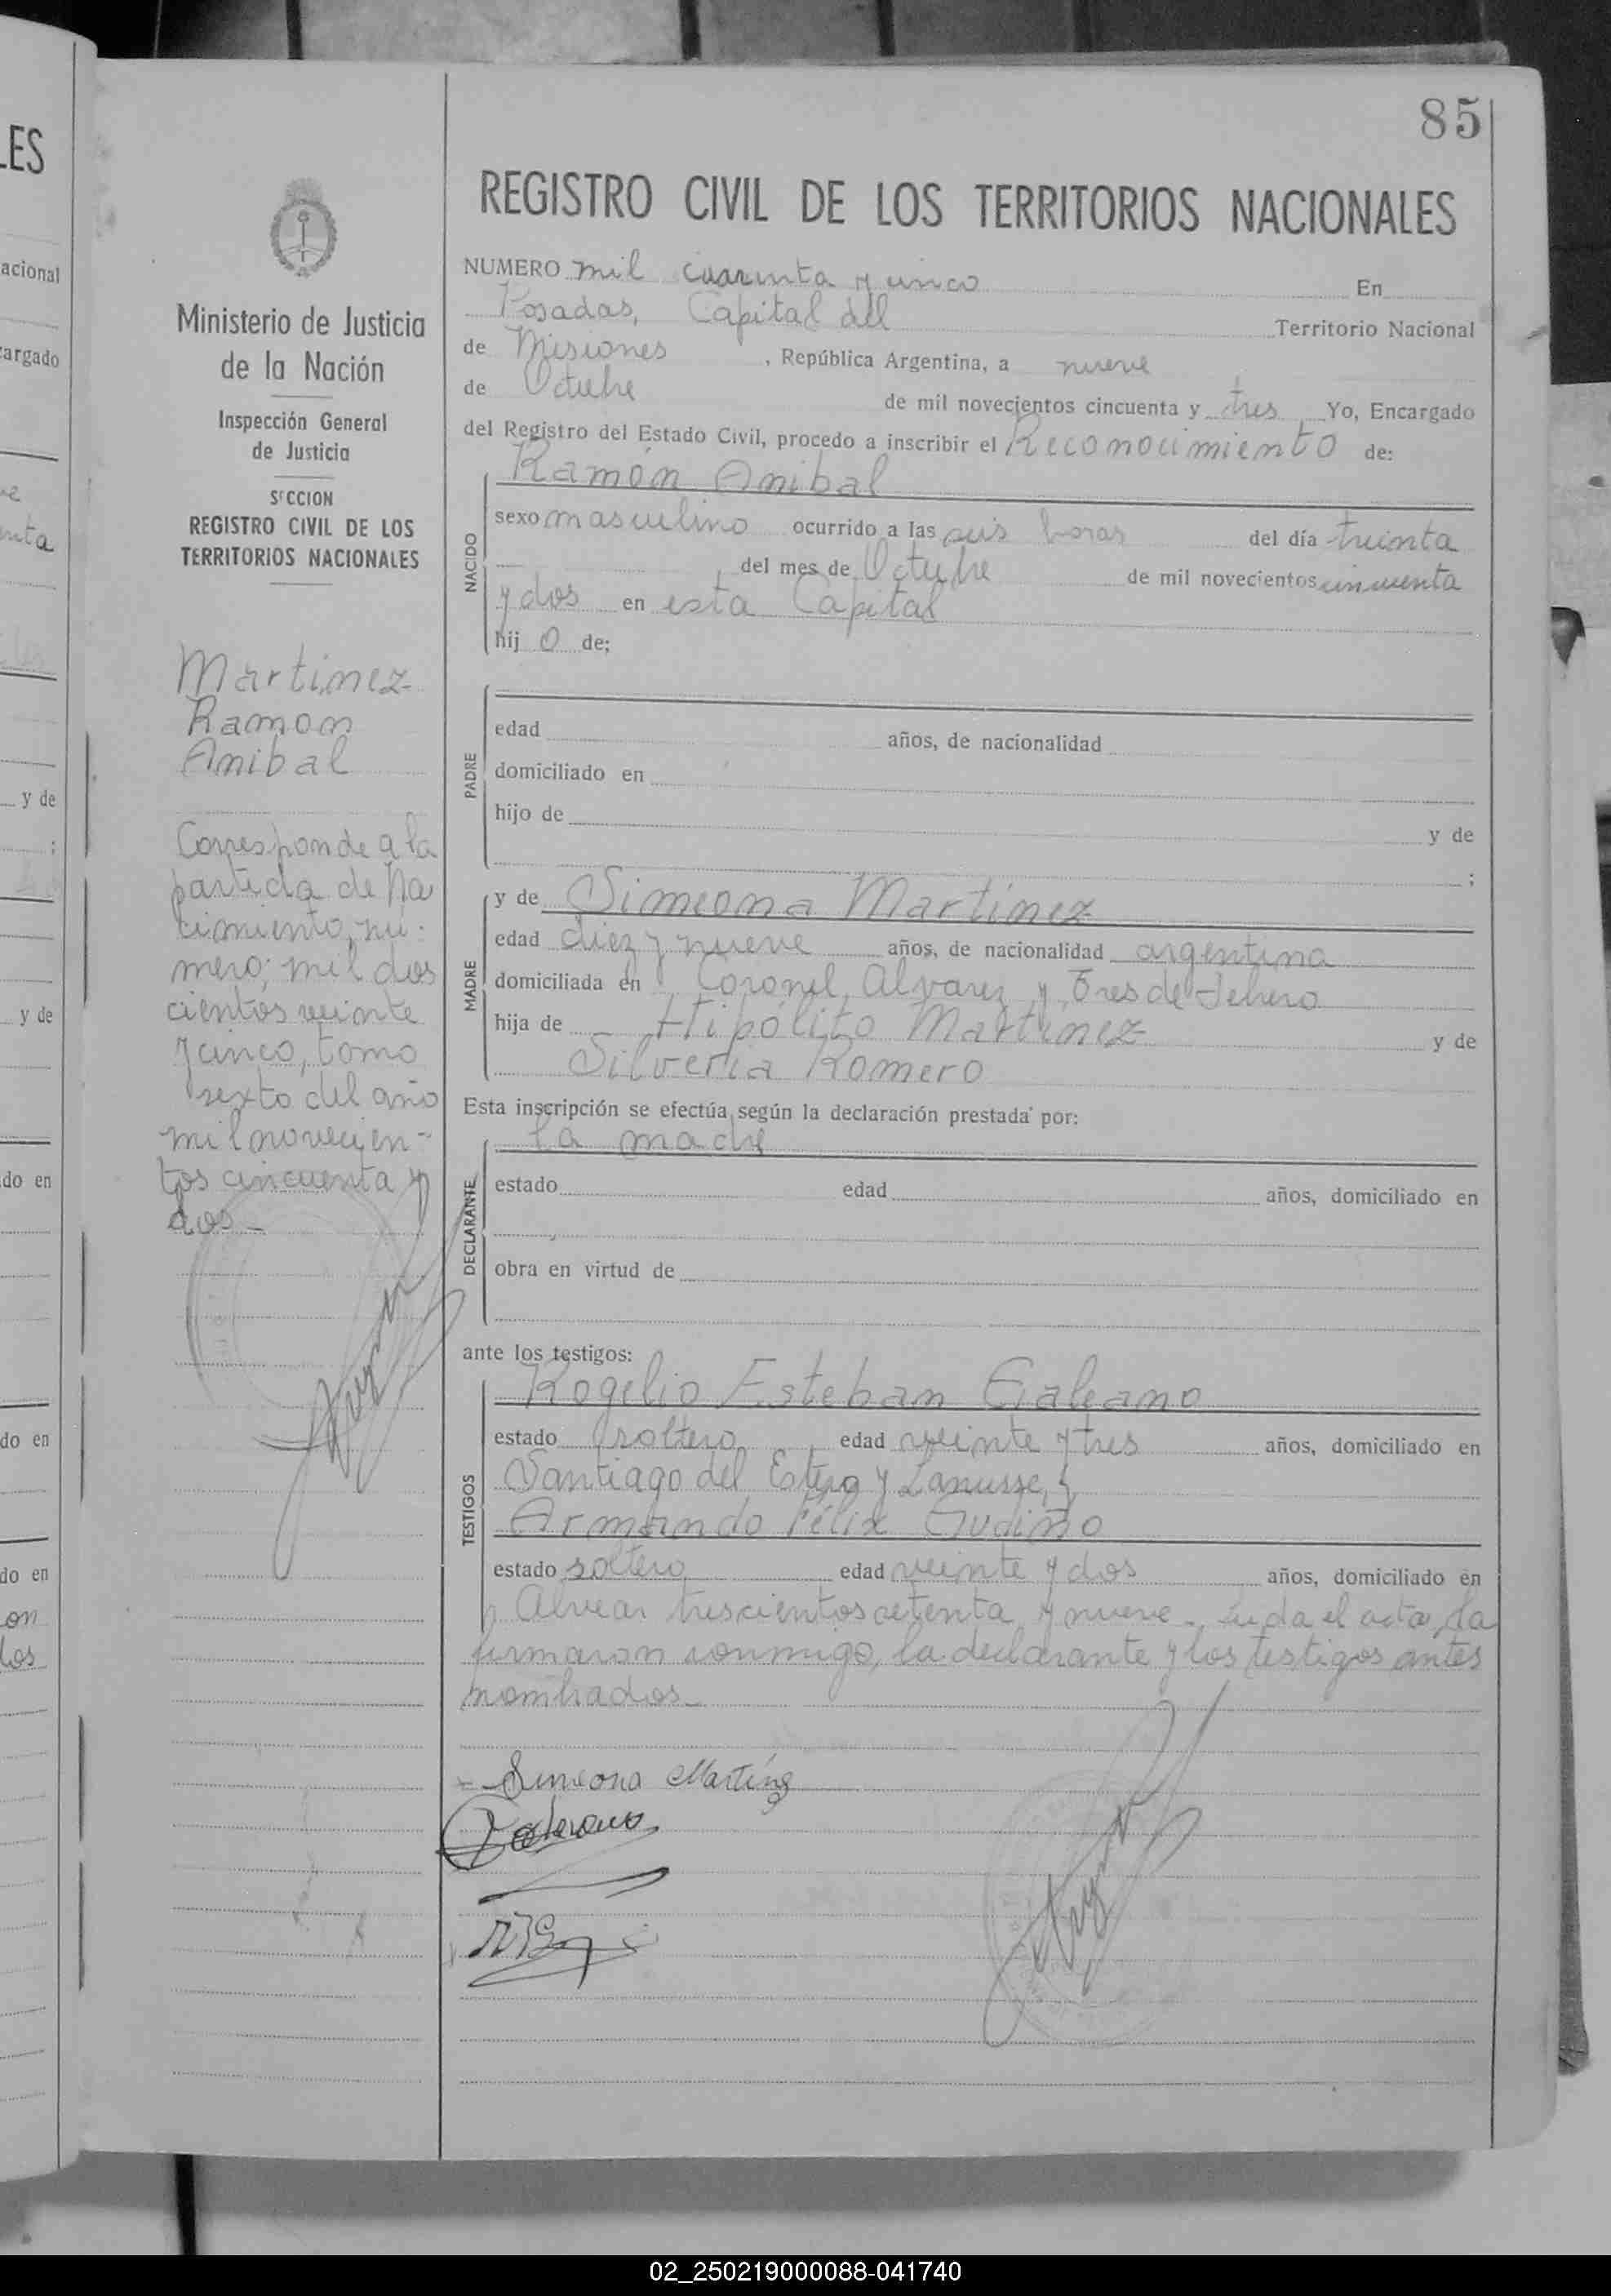 ES
acional
cargado
enta
y de
y de
do en
do en
do en
on
los
85
Ministerio de Justicia
de la Nación
Inspección General
de Justicia
SECCION
REGISTRO CIVIL DE LOS
TERRITORIOS NACIONALES
Martinez
Ramon
Anibal
Corresponde a la
partida de Na
cimiento, nú:
mero; mil dos
cientos veinte
y cinco, tomo
sexto del año
mil novecien-
tos cincuenta y
dos -
REGISTRO CIVIL DE LOS TERRITORIOS NACIONALES
NUMERO mil cuarenta y cinco En
Posadas, Capital del Territorio Nacional
de Misiones, República Argentina, a nueve
de Octubre de mil novecientos cincuenta y tres Yo, Encargado
del Registro del Estado Civil, procedo a inscribir el Reconocimiento de:
NACIDO
Ramón Anibal
sexo masculino ocurrido a las seis horas del día treinta
del mes de Octubre de mil novecientos cincuenta
y dos en esta Capital
hijo de;
PADRE
edad años, de nacionalidad
domiciliado en
hijo de y de
;
MADRE
y de Simeona Martinez
edad diez y nueve años, de nacionalidad argentina
domiciliada en Coronel Alvarez y Tres de Febrero
hija de Hipólito Martinez y de
Silveria Romero
Esta inscripción se efectúa según la declaración prestada por:
DECLARANTE
la madre
estado edad años, domiciliado en
obra en virtud de
ante los testigos:
TESTIGOS
Rogelio Esteban Galeano
estado soltero edad veinte y tres años, domiciliado en
Santiago del Estero y Lanusse, y
Armando Félix Gudiño
estado soltero edad veinte y dos años, domiciliado en
Alvear trescientos setenta y nueve - Leída el acta, la
firmaron conmigo, la declarante y los testigos antes
nombrados -
Simeona Martinez
02_250219000088-041740